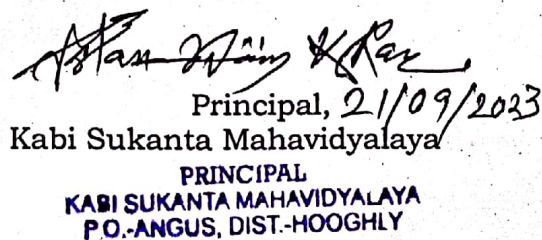 Principal, 21/09/2023
Kabi Sukanta Mahavidyalaya
PRINCIPAL
KABI SUKANTA MAHAVIDYALAYA
P.O.-ANGUS, DIST.-HOOGHLY